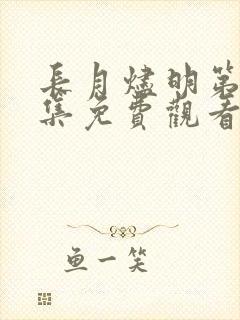 長月燼明第
集免費觀看
鱼一笑